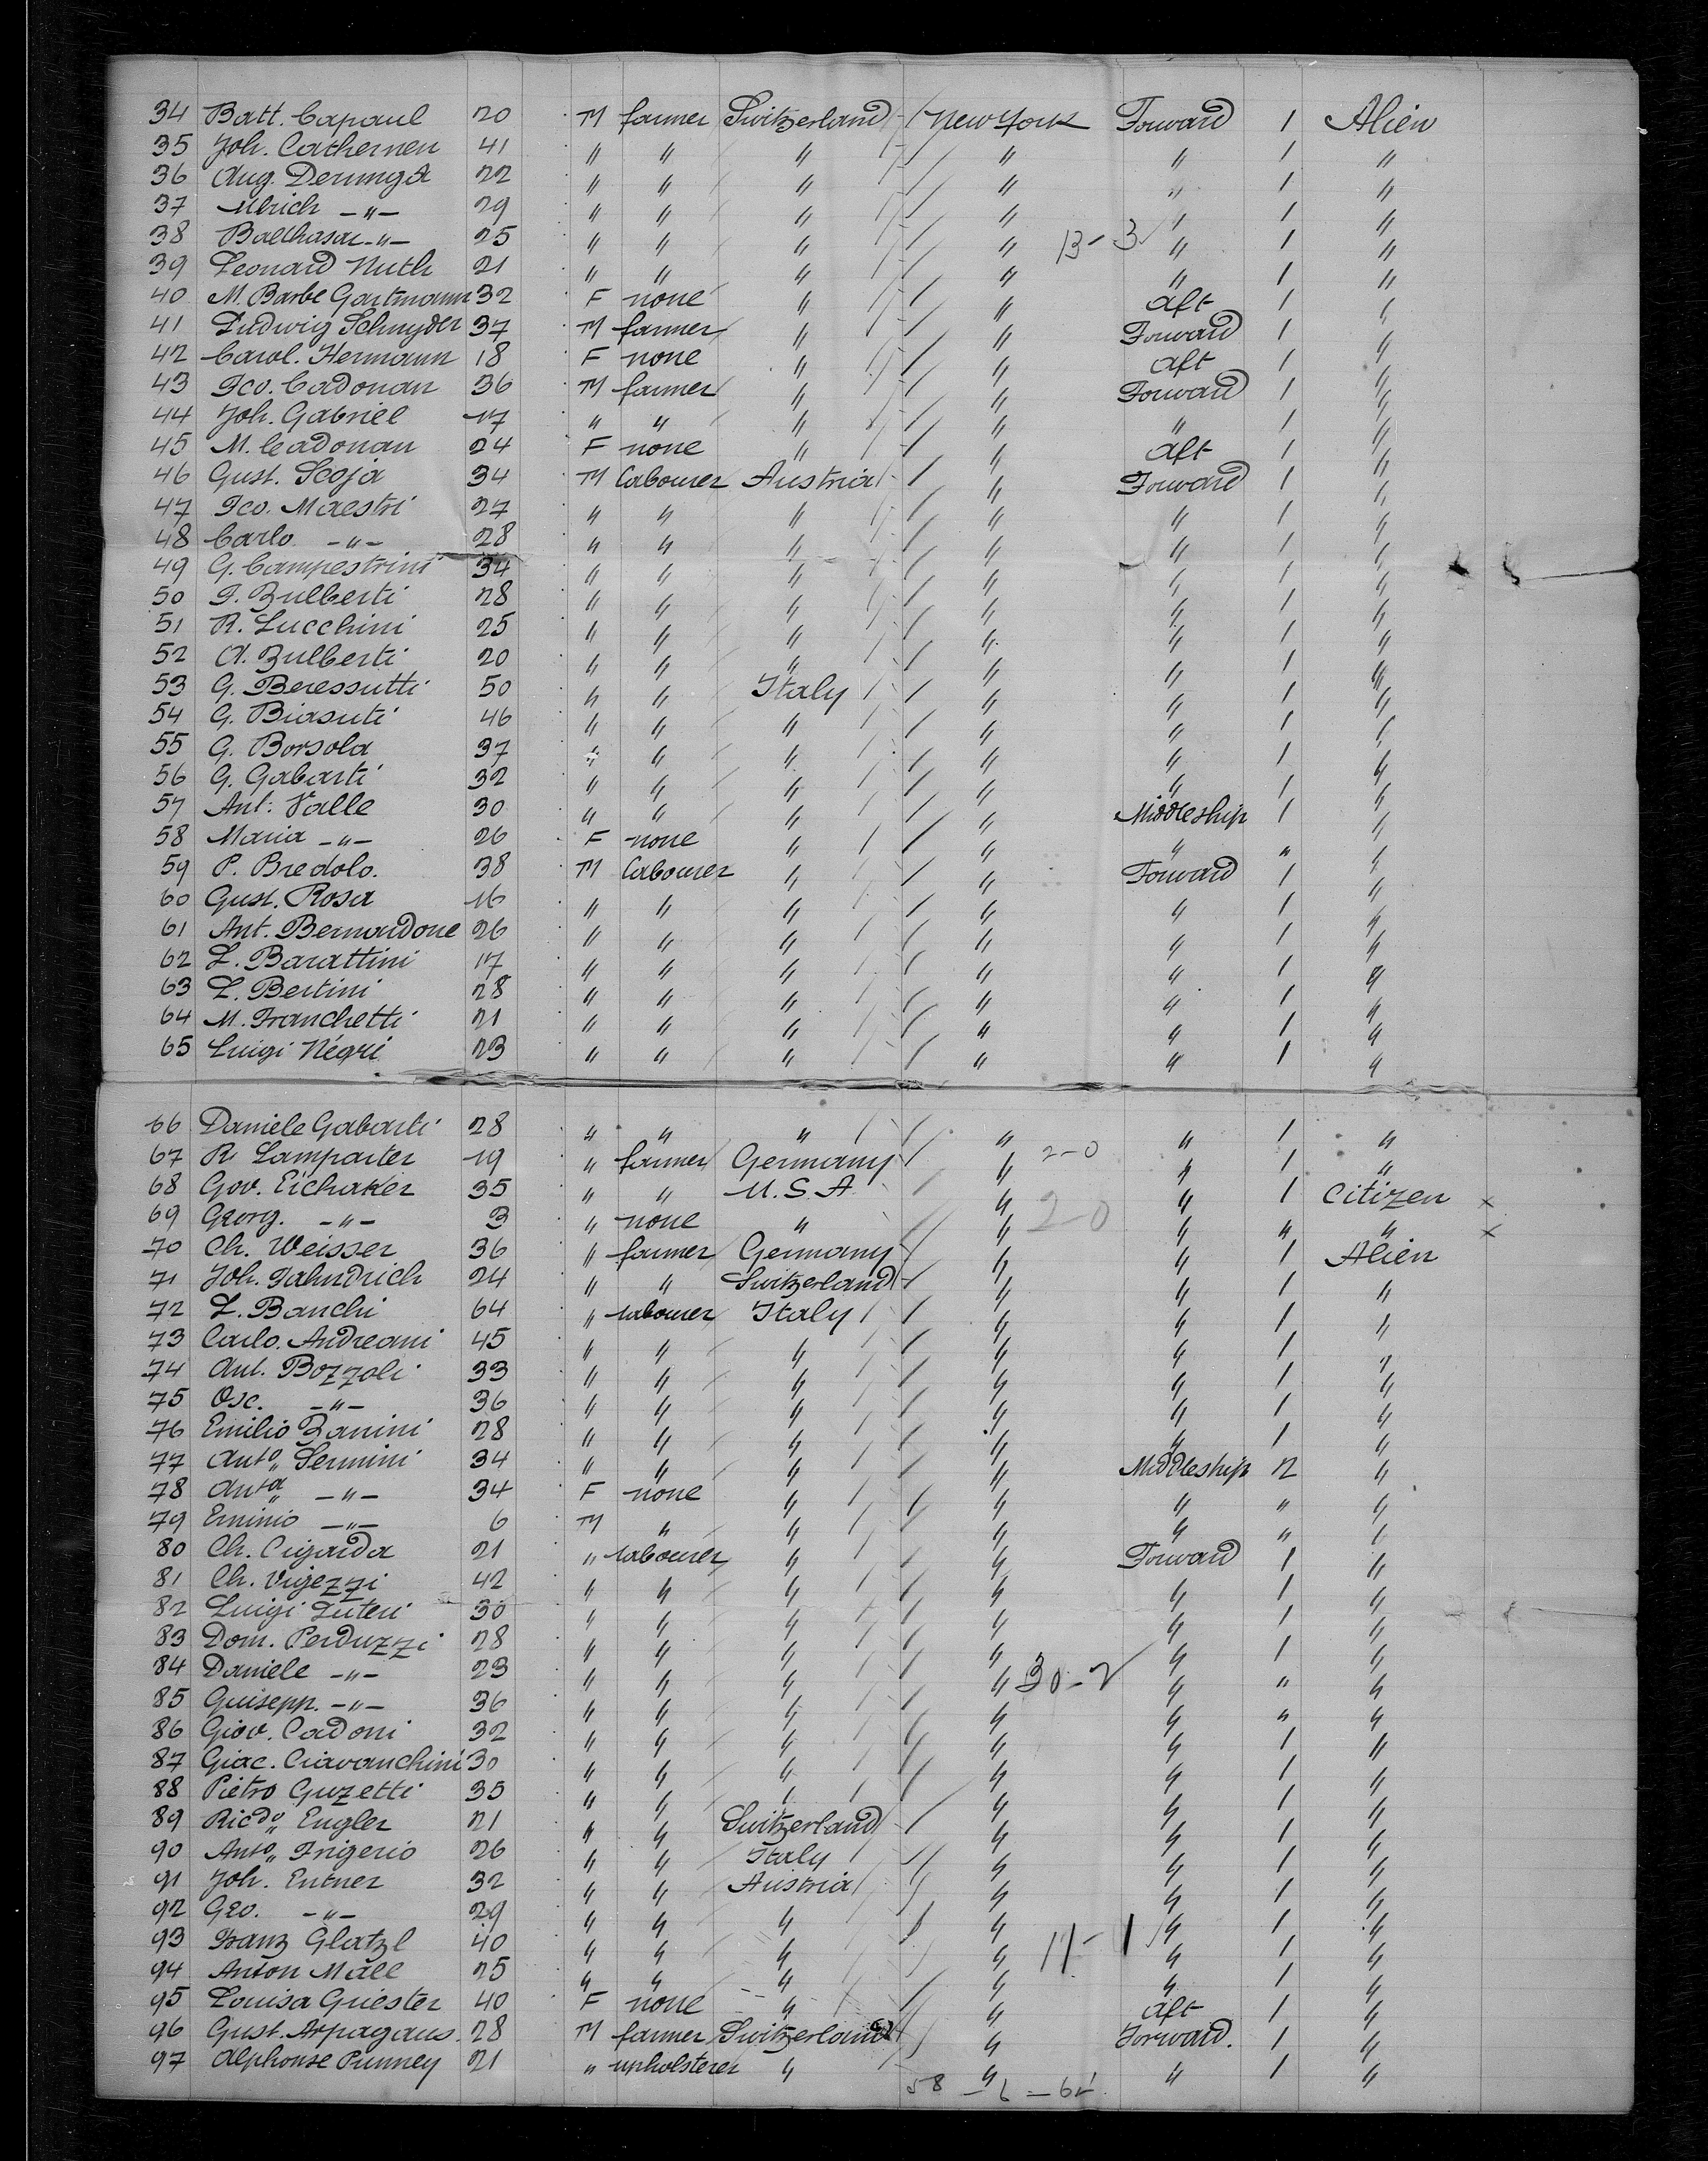 34 Batt. Capaul 20 M farmer Switzerland New York Forward 1 Alien
35 Joh. Cathernen 41 " " " " " 1 "
36 Aug. Derungs 22 " " " " " 1 "
37 Ulrich -"- 29 " " " " " 1 "
38 Balthasar -"- 25 " " " " 13-3 " 1 "
39 Leonard Nuth 21 " " " " " 1 "
40 M. Barbe Gartmann 32 F none " " Aft 1 "
41 Ludwig Schnyder 37 M farmer " " Forward 1 "
42 Carol. Hermann 18 F none " " Aft 1 "
43 Fco. Cadonau 36 M farmer " " Forward 1 "
44 Joh. Gabriel 17 " " " " " 1 "
45 M. Cadonau 24 F none " " Aft 1 "
46 Gust. Scoja 34 M Labourer Austria " Forward 1 "
47 Fco. Maestri 27 " " " " " 1 "
48 Carlo -"- 28 " " " " " 1 "
49 G. Campestrini 34 " " " " " 1 "
50 F. Zulberti 28 " " " " " 1 "
51 R. Lucchini 25 " " " " " 1 "
52 A. Zulberti 20 " " " " " 1 "
53 G. Beressutti 50 " " Italy " " 1 "
54 G. Biasuti 46 " " " " " 1 "
55 G. Borsola 37 " " " " " 1 "
56 G. Gabarti 32 " " " " " 1 "
57 Ant. Valle 30 " " " " Middleship 1 "
58 Maria -"- 26 F none " " " " "
59 P. Bredolo. 38 M Labourer " " Forward 1 "
60 Gust. Rosa 16 " " " " " 1 "
61 Ant. Bernardone 26 " " " " " 1 "
62 L. Barattini 17 " " " " " 1 "
63 L. Bertini 28 " " " " " 1 "
64 M. Franchetti 21 " " " " " 1 "
65 Luigi Négri 23 " " " " " 1 "
66 Daniele Gabarti 28 " " " " " 1 "
67 R. Lamparter 19 " farmer Germany " 2-0 " 1 "
68 Gov. Eichaker 35 " " U.S.A. " " 1 Citizen x
69 Georg. -"- 3 " none " " 2-0 " " " x
70 Ch. Weisser 36 " farmer Germany " " 1 Alien
71 Joh. Fahndrich 24 " " Switzerland " " 1 "
72 L. Banchi 64 " labourer Italy " " 1 "
73 Carlo. Andreani 45 " " " " " 1 "
74 Ant. Bozzoli 33 " " " " " 1 "
75 Osc. -"- 36 " " " " " 1 "
76 Emilio Zanini 28 " " " " " 1 "
77 Anto. Sermini 34 " " " " Middleship 2 "
78 Anta -"- 34 F none " " " " "
79 Erminio -"- 6 M " " " " " "
80 Ch. Cigarda 21 " labourer " " Forward 1 "
81 Ch. Vigezzi 42 " " " " " 1 "
82 Luigi Luteri 30 " " " " " 1 "
83 Dom. Perduzzi 28 " " " " " 1 "
84 Daniele -"- 23 " " " " 30-2 " " "
85 Guisepp. -"- 36 " " " " " " "
86 Giov. Cadoni 32 " " " " " 1 "
87 Giac. Ciavanchini 30 " " " " " 1 "
88 Pietro Guzetti 35 " " " " " 1 "
89 Ricdo. Engler 21 " " Switzerland " " 1 "
90 Anto. Frigerio 26 " " Italy " " 1 "
91 Joh. Entner 32 " " Austria " " 1 "
92 Geo. -"- 29 " " " " " 1 "
93 Franz Glatzl 40 " " " " 11-1 " 1 "
94 Anton Mall 25 " " " " " 1 "
95 Louisa Griester 40 F none " " Aft 1 "
96 Gust. Arpagaus. 28 M farmer Switzerland " Forward. 1 "
97 Alphonse Punney 21 " upholsterer " " " 1 "
58 - 6 = 64